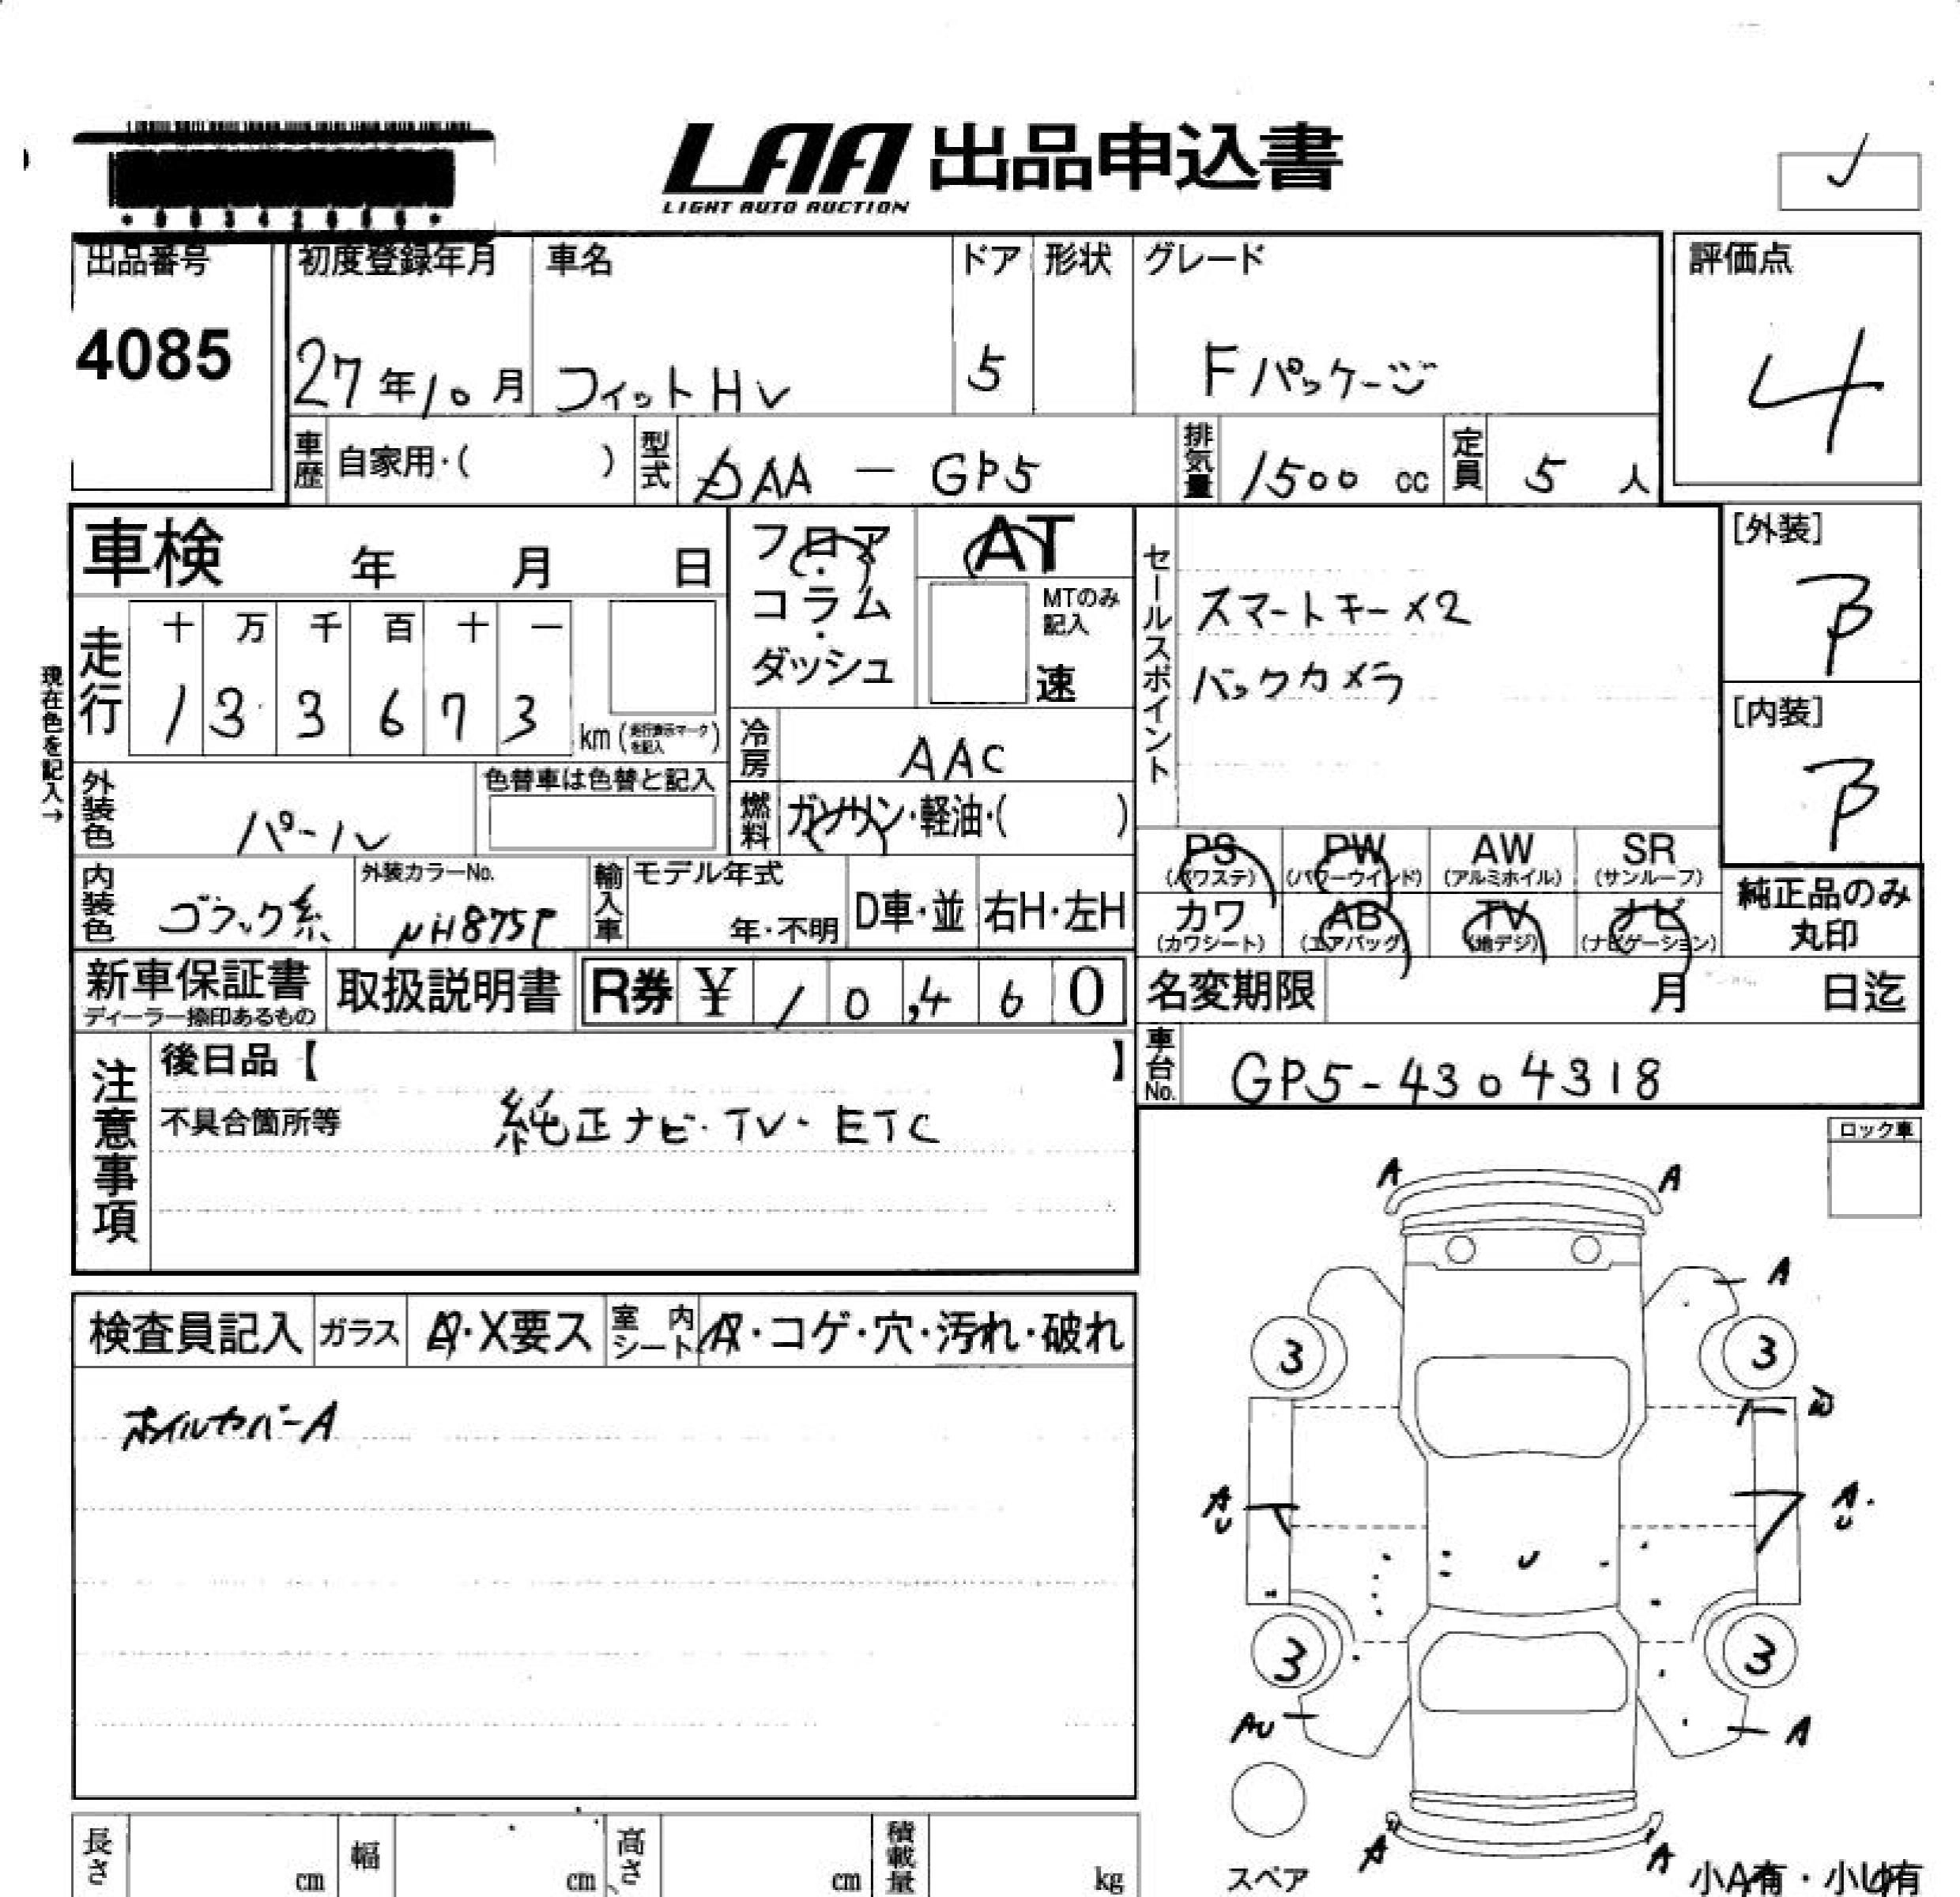 LAA 出品申込書
LIGHT AUTO AUCTION
出品番号 初度登録年月 車名 ドア 形状 グレード 評価点
4085 27年10月 フィットHV 5 Fパッケージ 4
車歴 自家用・( ) 型式 DAA - GP5 排気量 1500 cc 定員 5 人
車検 年 月 日
フロア・コラム・ダッシュ
AT
MTのみ記入
速
走行 十 万 千 百 十 一
1 3 3 6 7 3 km (走行表示マークを記入)
現在色を記入→
冷房 AAC
外装色 パール 色替車は色替と記入
燃料 ガソリン・軽油・( )
内装色 ブラック系 外装カラーNo. NH875P
輸入車 モデル年式 年・不明 D車・並 右H・左H
新車保証書 ディーラー捺印あるもの 取扱説明書 R券 ¥ 10,460
セールスポイント
スマートキー×2
バックカメラ
[外装]
B
[内装]
B
PS (パワステ) PW (パワーウインド) AW (アルミホイル) SR (サンルーフ)
カワ (カワシート) AB (エアバッグ) TV (地デジ) ナビ (ナビゲーション)
純正品のみ丸印
名変期限 月 日迄
車台No. GP5-4304318
注意事項
後日品【 】
不具合箇所等 純正ナビ・TV・ETC
ロック車
検査員記入 ガラス A・X要ス 室内シート A・コゲ・穴・汚れ・破れ
ホイルカバーA
A A
A
3 3
W
A U A U
U
3 3
AU A
A A
スペア
小A有・小U有
長さ cm 幅 cm 高さ cm 積載量 kg